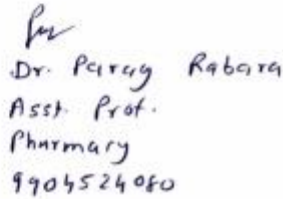 Dr. Parag Rabara
Asst. Prof.
Pharmacy
9904524080